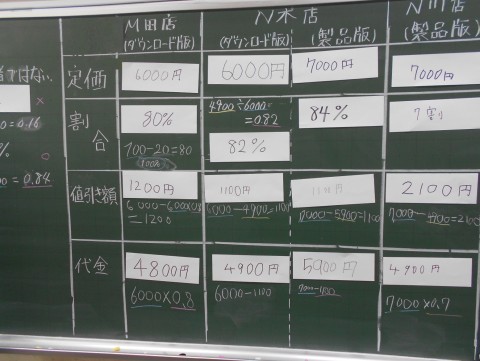 M田店
(ダウンロード版)
N木店
(ダウンロード版)
(製品版)
N川店
(製品版)
ではない。
×
= 0.16
%
○
= 0.84
定価
6000円
6000円
7000円
7000円
割合
80%
100-20=80
100%
4900÷6000
=0.82
82%
84%
7割
値引き額
1200円
6000-6000×0.8
=1200
1100円
6000-4900=1100
1100円
7000-5900=1100
2100円
7000-4900=2100
代金
4800円
6000×0.8
4900円
6000-1100
5900円
7000-1100
4900円
7000×0.7